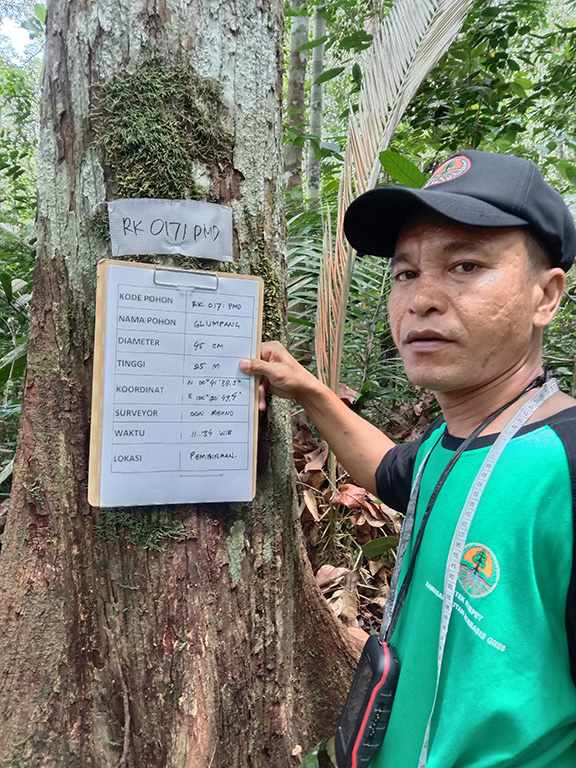 RK 0171 PMD
KODE POHON RK 0171 PMD
NAMA POHON GLUMPANG
DIAMETER 45 CM
TINGGI 25 M
KOORDINAT N 00°41'38.3"
E 100°20'49,9"
SURVEYOR
WAKTU 11.34 WIB
LOKASI PEMBINAAN.
BERBASIS GNSS